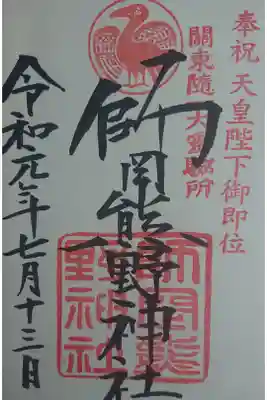 奉祝 天皇陛下御即位
關東隨一大霊驗所
師岡熊野神社
師岡熊野神社
令和元年七月十三日